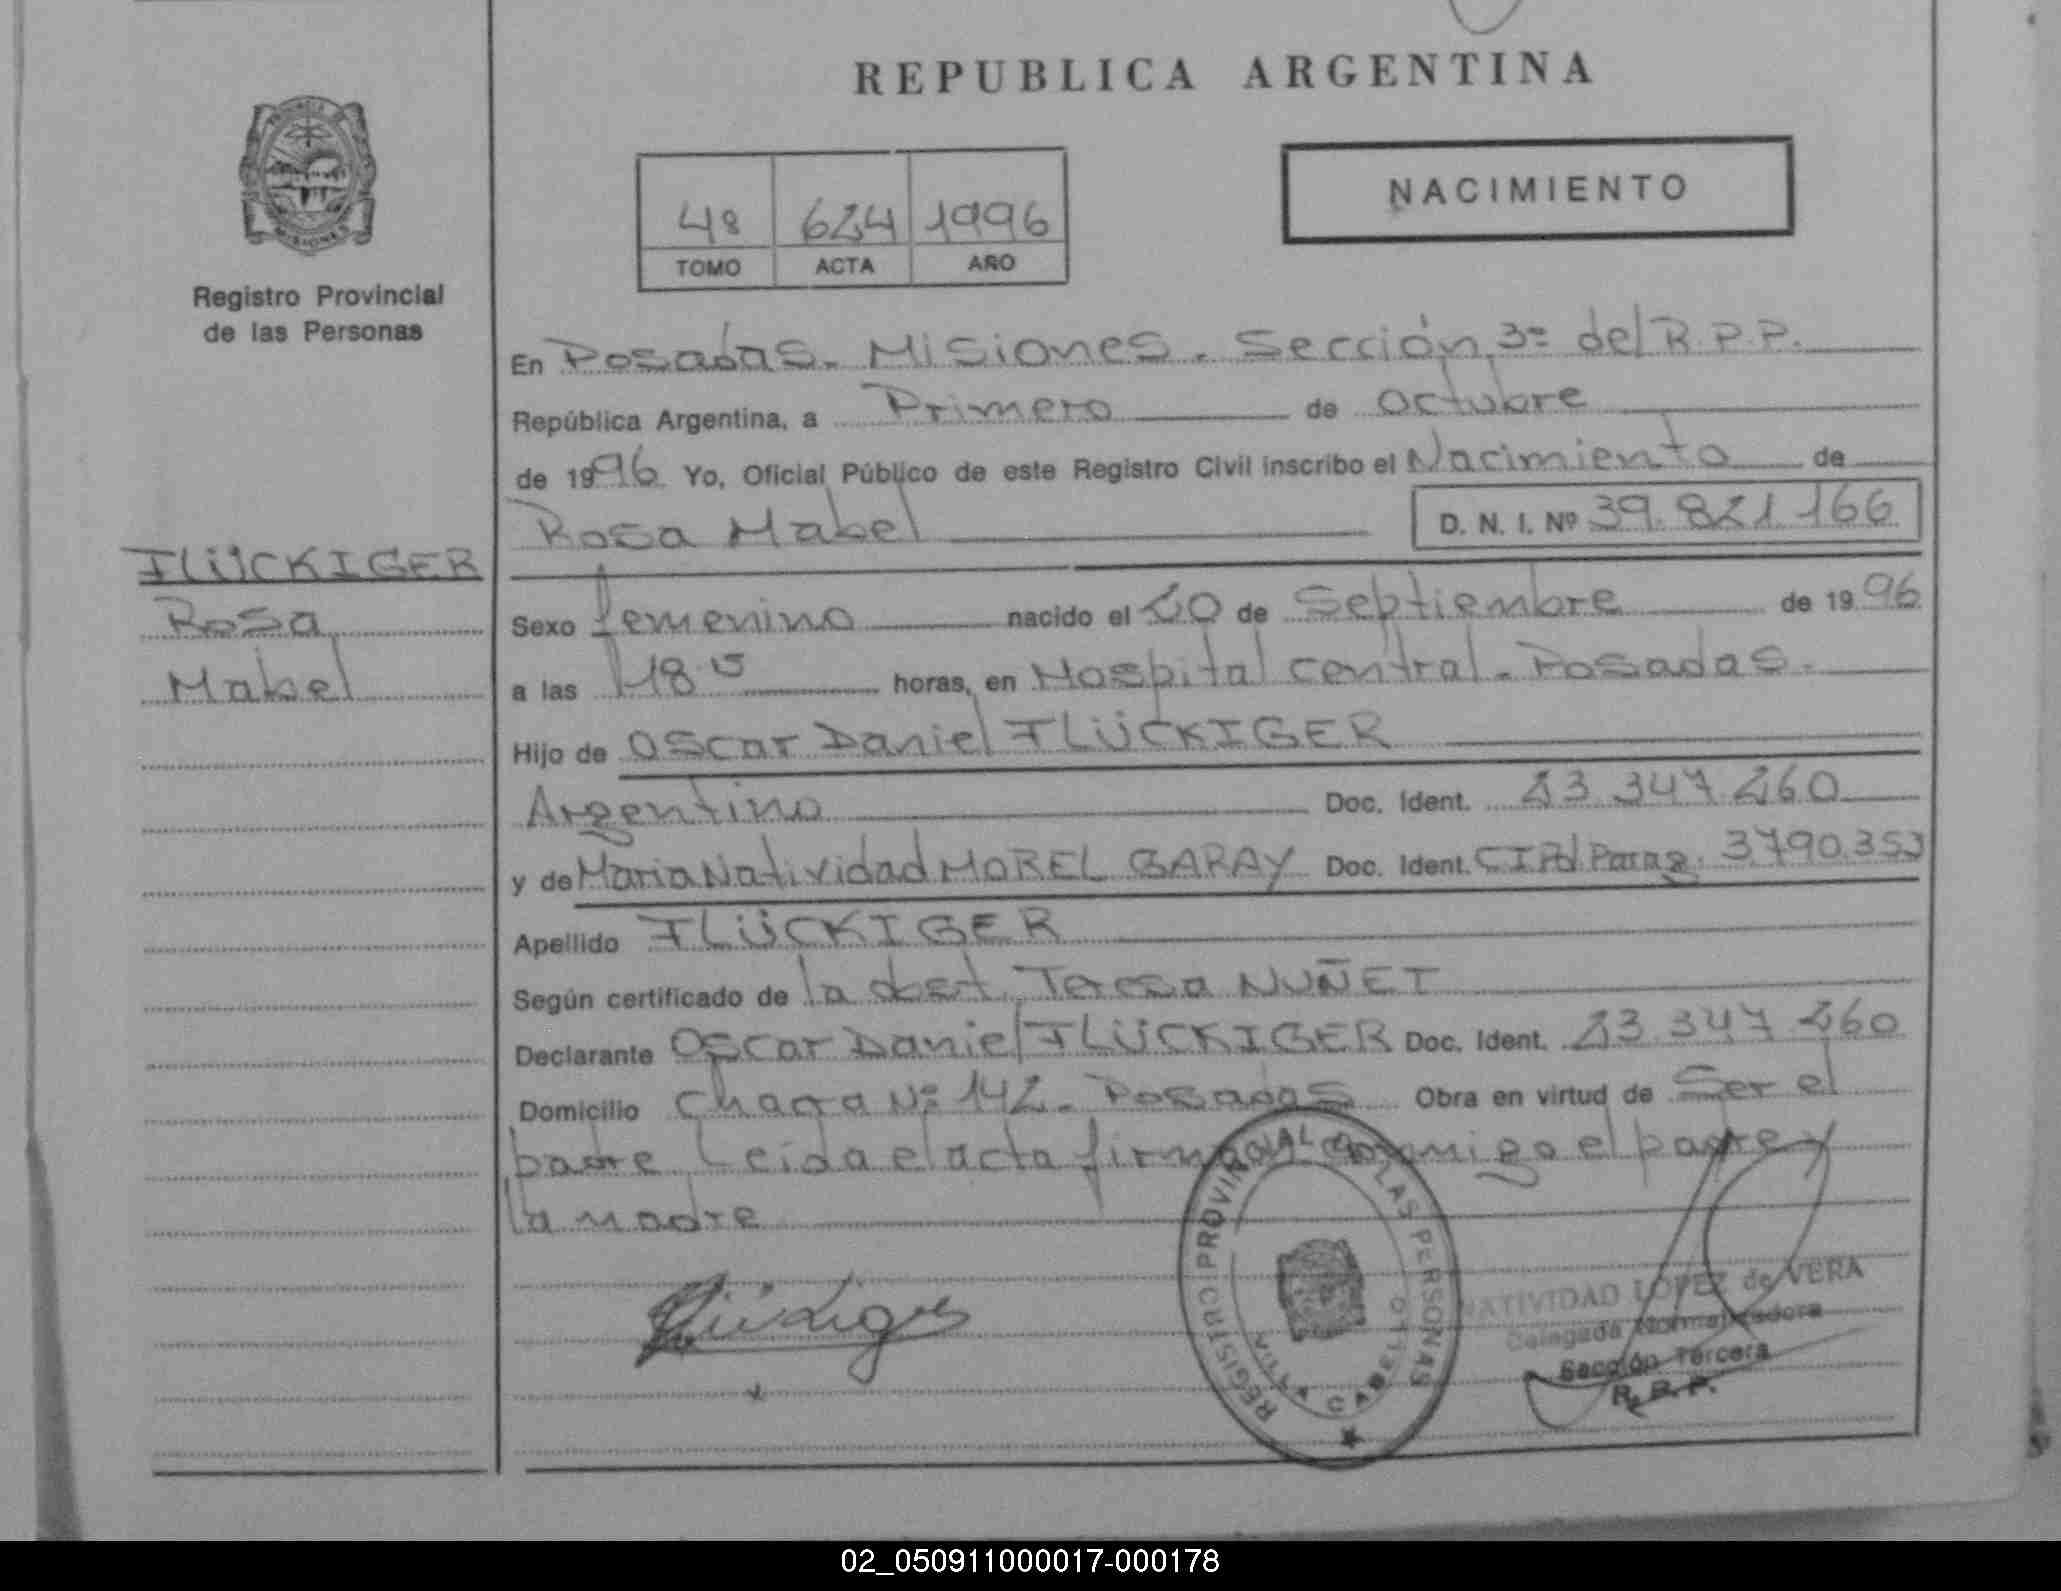 REPUBLICA ARGENTINA
NACIMIENTO
48 624 1996
TOMO ACTA AÑO
PROVINCIA DE
MISIONES
Registro Provincial
de las Personas
FLÜCKIGER
Rosa
Mabel
En Posadas. Misiones. Sección 3ª del R.P.P.
República Argentina, a Primero de Octubre
de 1996 Yo, Oficial Público de este Registro Civil inscribo el Nacimiento de
Rosa Mabel D. N. I. Nº 39.821.166
Sexo femenino nacido el 20 de Septiembre de 1996
a las 18 horas, en Hospital central. Posadas.
Hijo de Oscar Daniel FLÜCKIGER
Argentino Doc. Ident. 23.347.260
y de Maria Natividad MOREL GARAY Doc. Ident. Parag. 3790.353
Apellido FLÜCKIGER
Según certificado de la obst. Teresa NUÑEZ
Declarante Oscar Daniel FLÜCKIGER Doc. Ident. 23.347.260
Domicilio Chacra Nº 142. Posadas Obra en virtud de Ser el
padre Leída el acta firman conmigo el padre y
la madre
REGISTRO PROVINCIAL DE LAS PERSONAS
VILLA CABELLO
NATIVIDAD LOPEZ de VERA
Delegada Normalizadora
Sección Tercera
R. P. P.
02_050911000017-000178